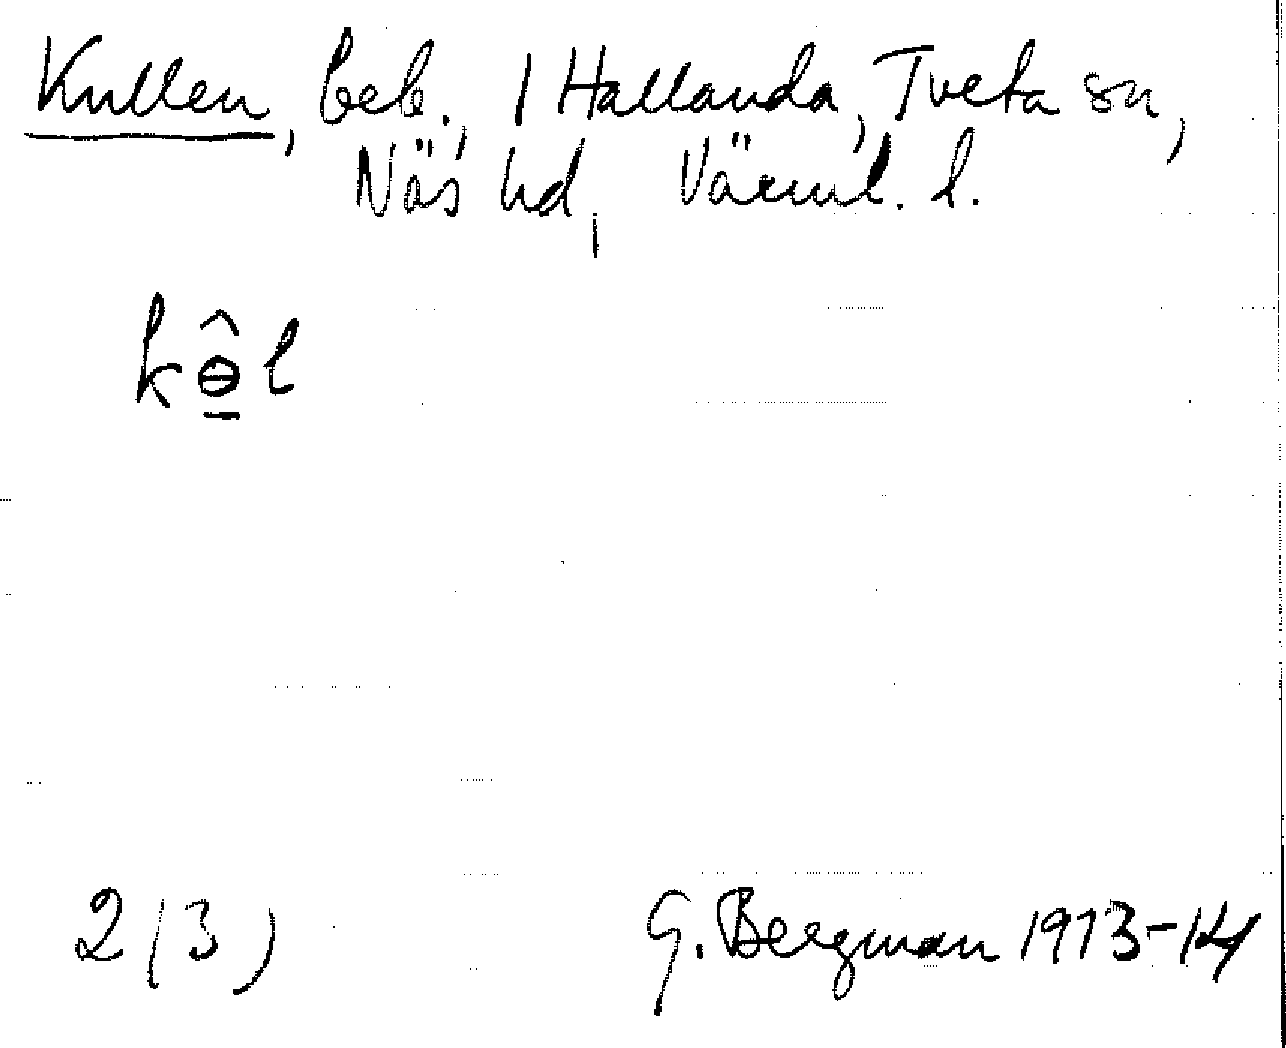 Kullen, beb., 1 Hallanda, Tveta sn,
Näs hd, Värml. l.
kɵ̱̂l
2(3)
G. Bergman 1913-14